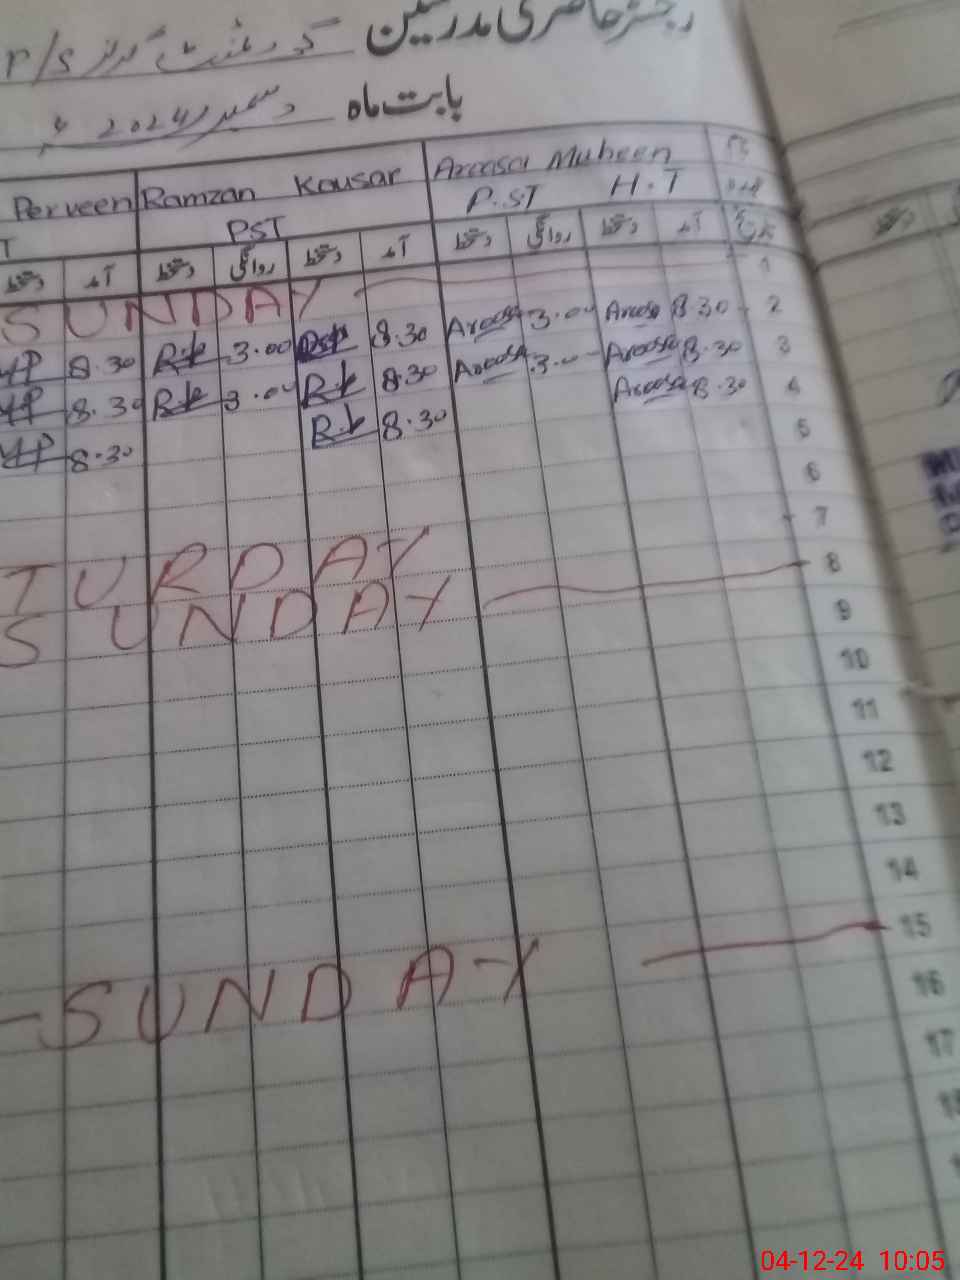 رجسٹر حاضری مدرسین گورنمنٹ گرلز P/S
بابت ماہ دسمبر 2024ء
Perveen Ramzan Kousar Areesa Muheen
T PST P.ST H.T
دستخط آمد دستخط روانگی دستخط آمد دستخط روانگی دستخط آمد تاریخ
SUNDAY 1
8.30 R.k 3.00 8.30 Areesa 3.00 Areesa 8.30 2
8.30 R.k 3.00 R.k 8.30 Areesa 3.00 Areesa 8.30 3
8.30 R.k 8.30 Areesa 8.30 4
5
6
TURDAY 7
SUNDAY 8
9
10
11
12
13
14
SUNDAY 15
16
17
04-12-24 10:05